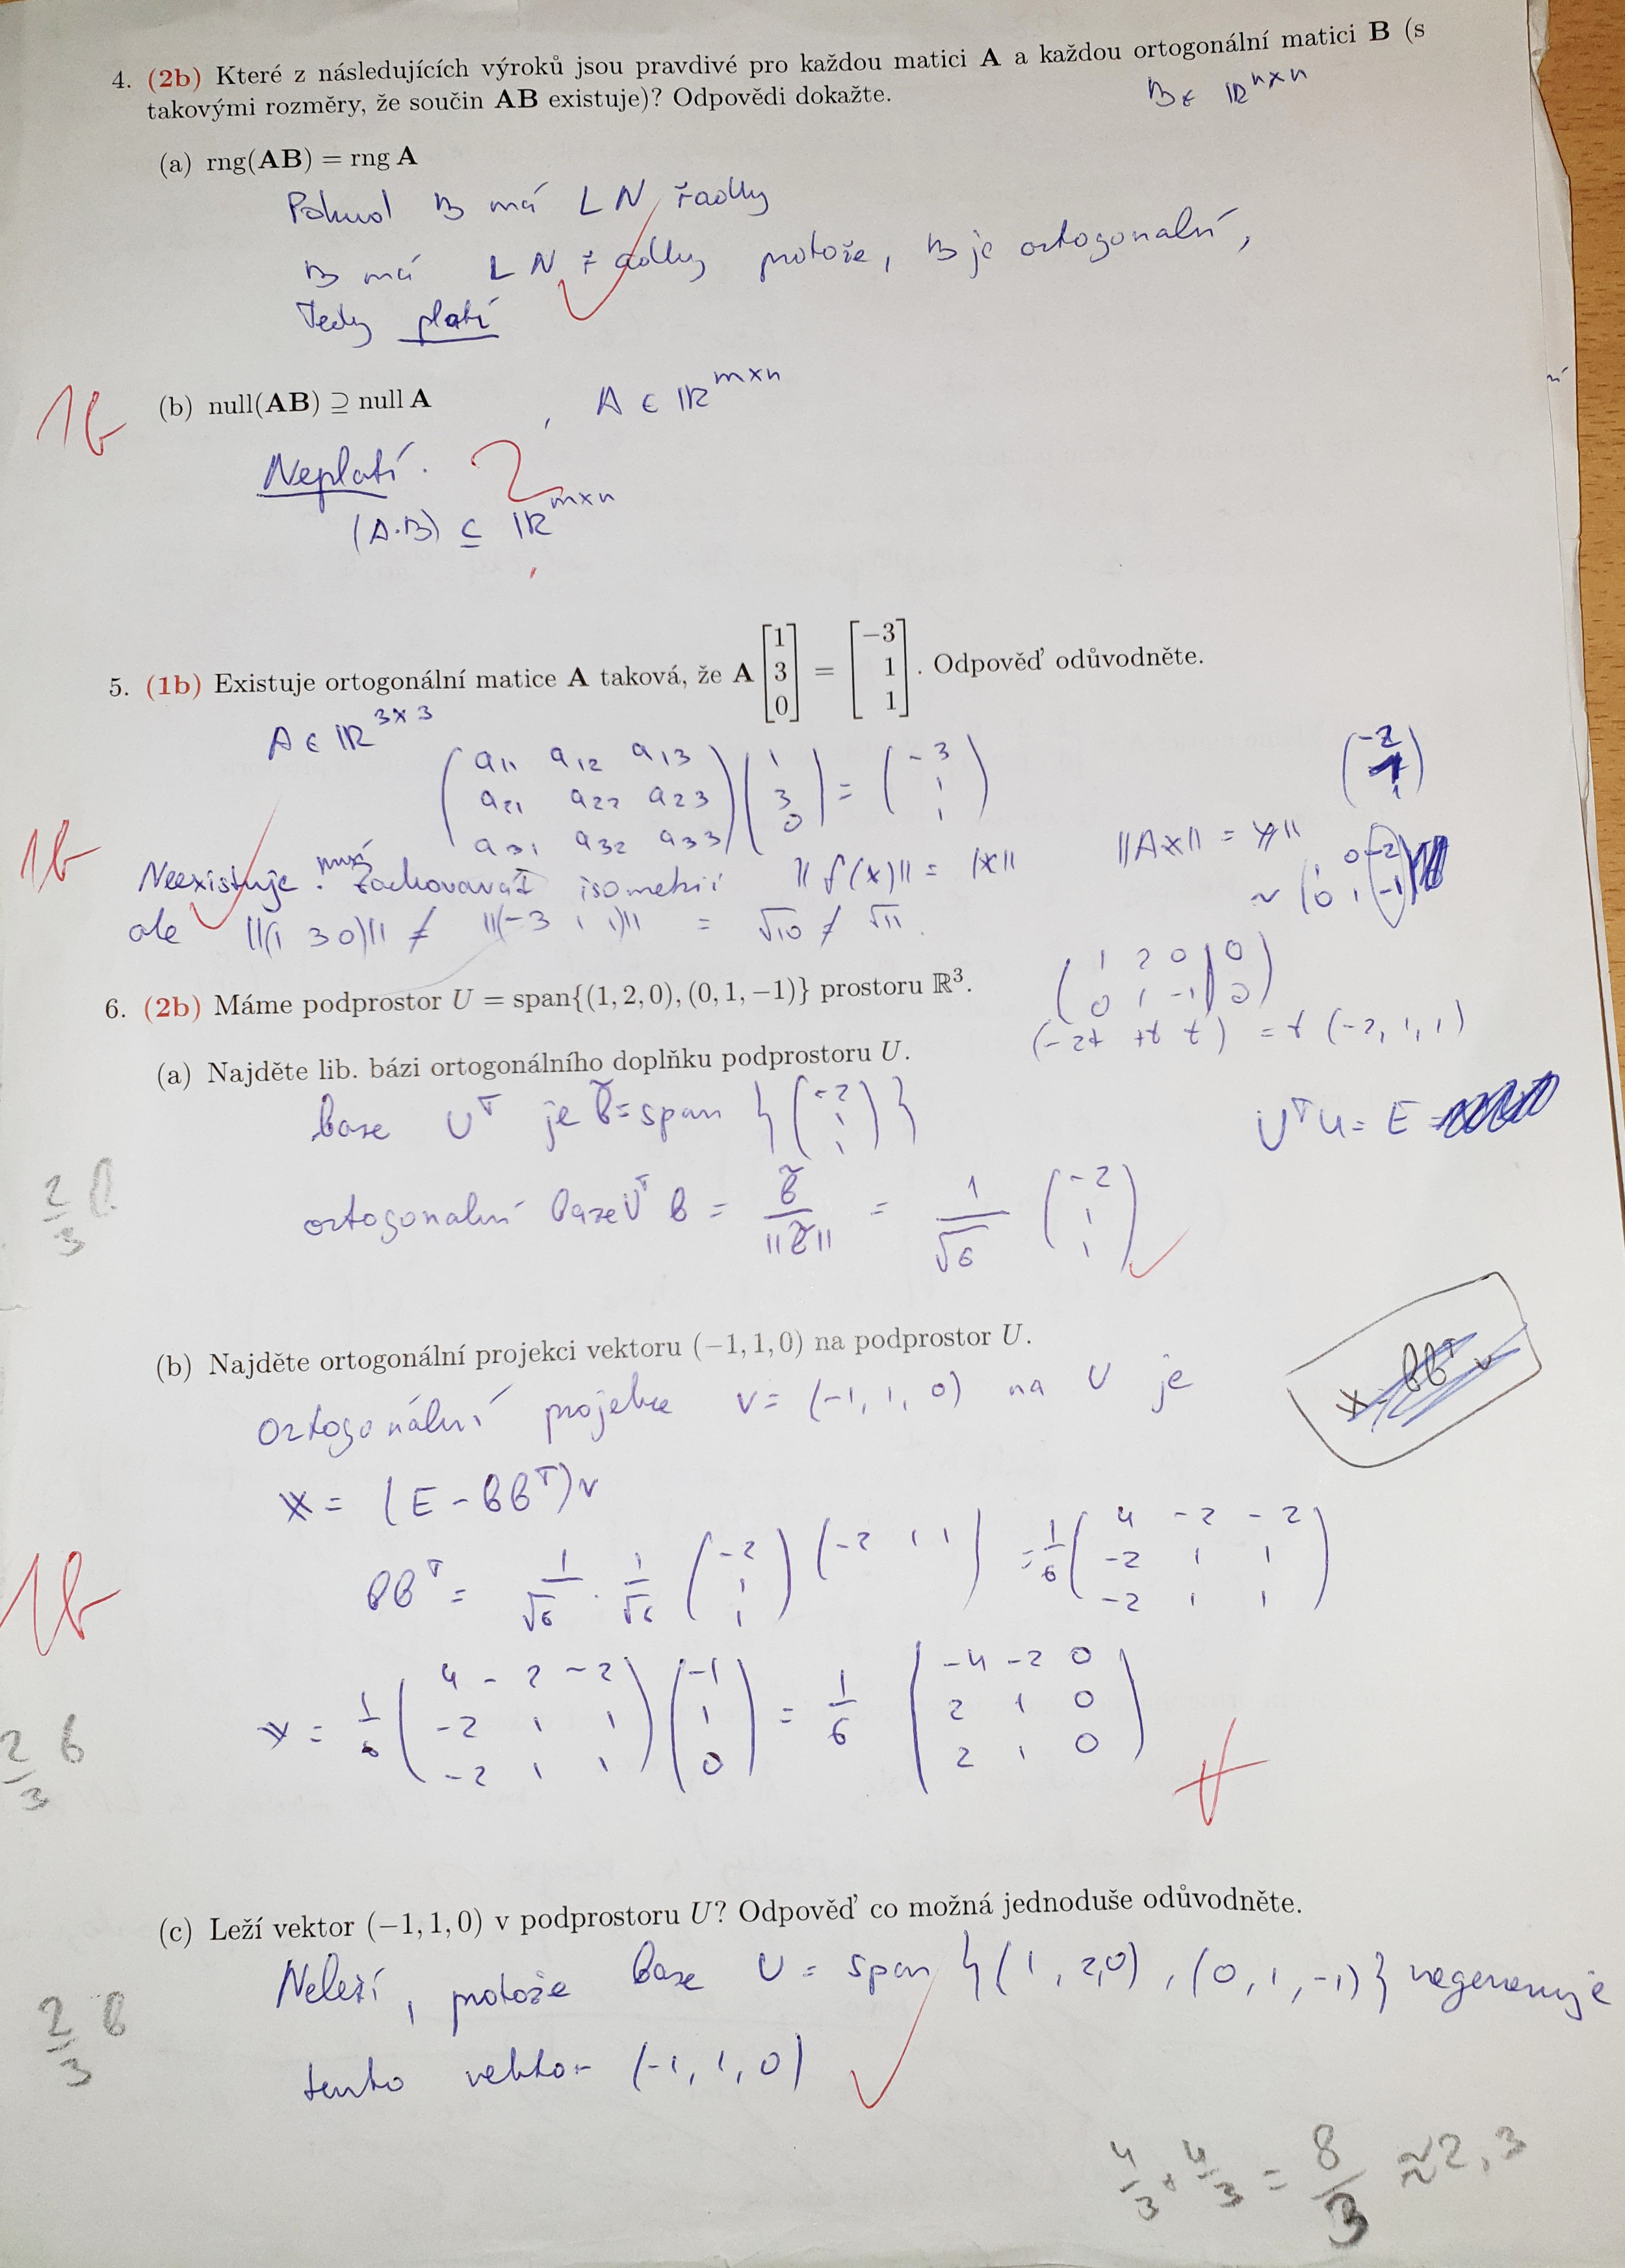 4. (2b) Které z následujících výroků jsou pravdivé pro každou matici A a každou ortogonální matici B (s
takovými rozměry, že součin AB existuje)? Odpovědi dokažte.
B ∈ ℝ^{n×n}
(a) rng(AB) = rng A
Pokud B má LN řádky
B má LN řádky protože, B je ortogonalní,
Tedy platí
1b
(b) null(AB) ⊇ null A
, A ∈ ℝ^{m×n}
Neplatí.
(A·B) ⊆ ℝ^{m×n}
5. (1b) Existuje ortogonální matice A taková, že A [1 3 0] = [−3 1 1]. Odpověď odůvodněte.
A ∈ ℝ^{3×3}
(a11 a12 a13
a21 a22 a23
a31 a32 a33) (1 3 0) = (-3 1 1)
(-2 1 1)
1b
Neexistuje. musí zachovavat isometrii ||f(x)|| = |x||
||Ax|| = x||
~ (1 0 -2
0 1 -1)
ale ||(1 3 0)|| ≠ ||(-3 1 1)|| = √10 ≠ √11.
(1 2 0 | 0
0 1 -1 | 0)
6. (2b) Máme podprostor U = span{(1, 2, 0), (0, 1, −1)} prostoru ℝ³.
(-2t +t t) = t (-2, 1, 1)
(a) Najděte lib. bázi ortogonálního doplňku podprostoru U.
base U^T je b̃ = span {(-2 1 1)}
U^T U = E
2/3 b
ortogonalní base U^T b = b̃/||b̃|| = 1/√6 (-2 1 1)
(b) Najděte ortogonální projekci vektoru (−1, 1, 0) na podprostor U.
x = BB^T v
Ortogonální projekce v = (-1, 1, 0) na U je
x = (E - BB^T)v
1b
BB^T = 1/√6 · 1/√6 (-2 1 1) (-2 1 1) = 1/6 (4 -2 -2
-2 1 1
-2 1 1)
2/3 b
x = 1/6 (4 -2 -2
-2 1 1
-2 1 1) (-1 1 0) = 1/6 (-4 -2 0
2 1 0
2 1 0)
(c) Leží vektor (−1, 1, 0) v podprostoru U? Odpověď co možná jednoduše odůvodněte.
Neleží, protože base U = span {(1, 2,0), (0, 1, -1)} negeneruje
2/3 b
tento vektor (-1, 1, 0)
4/3 + 4/3 = 8/3 ≈ 2,3